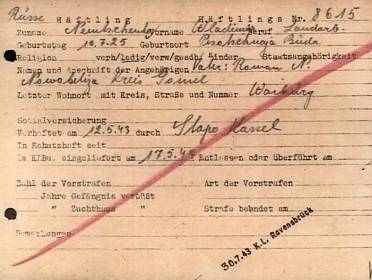 Russe Häftling Häftlings Nr. 8615
Zuname Nemtschenko Vorname Wladimir Beruf Landarb.
Geburtstag 10.7.25 Geburtsort Buda
Religion verh/ledig/verw/gesch/ Kinder Staatsangehörigkeit
Namen und Anschrift der Angehörigen Vater: Roman N.
Kreis Gomel
Letzter Wohnort mit Kreis, Straße und Nummer Warburg
Sozialversicherung
Verhaftet am 12.5.43 durch Stapo Kassel
In Schutzhaft seit
In KlBu. eingeliefert am 17.5.43 Entlassen oder überführt am
Zahl der Vorstrafen Art der Vorstrafen
Jahre Gefängnis verbüßt
" Zuchthaus " Strafe beendet am
Bemerkungen
30.7.43 K.L. Ravensbrück